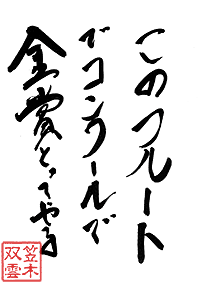 このフルート
でコンクールで
金賞とってやる
笠木
双雲